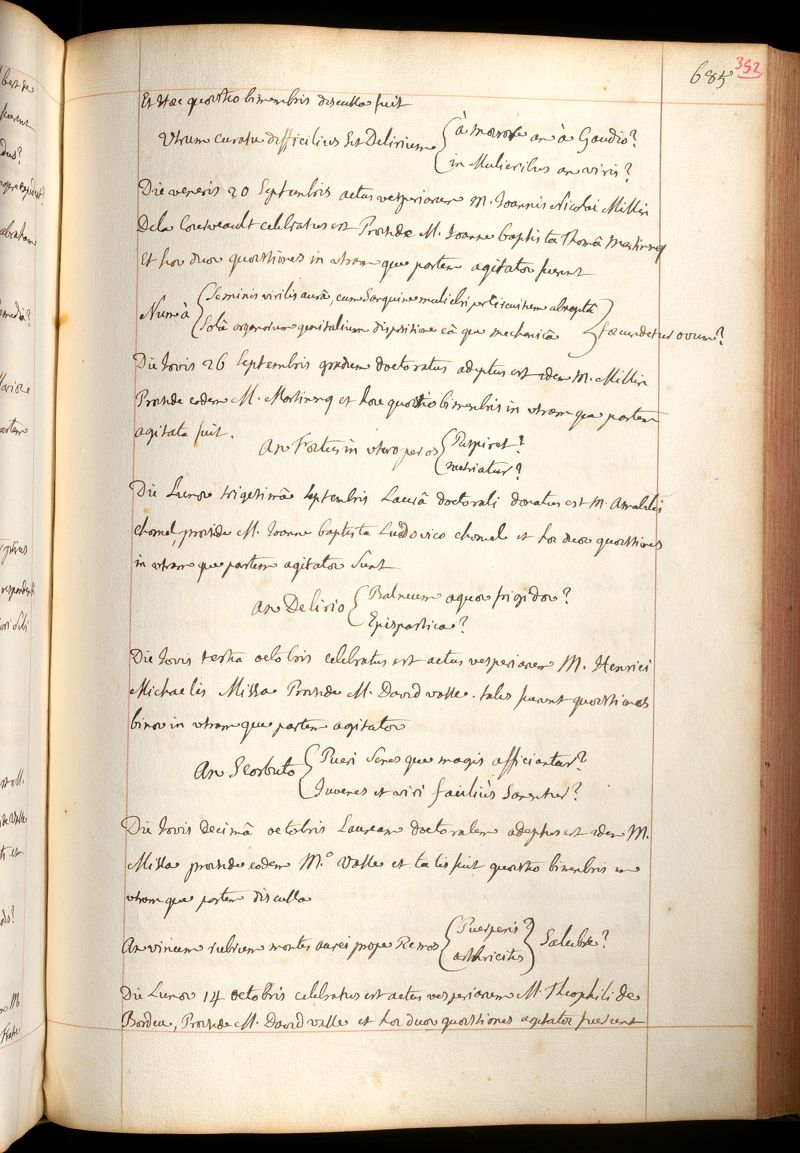 685 352
Et Hæc quæstio bimembris discussa fuit
Utrum curatu difficilius sit Delirium { à mœrore an à Gaudio?
in Mulieribus an viris?
Die veneris 20 Septembris actus vesperiarum M. Joannis Nicolai Millin
De la Courveault celebratus est Præside M. Joanne baptista Thomâ Martinenq
Et hæ duæ quæstiones in utramque partem agitatæ fuerunt
Num à { Seminis virilis aurâ, cum Sanguine muliebri per Circuitum abreptâ
Solâ organorum genitalium dispositione eâque mechanicâ } fæcundetur ovum?
Die Jovis 26 Septembris gradum doctoratus adeptus est idem M. Millin
Præside eodem M. Martinenq et hæc quæstio bimembris in utramque partem
agitata fuit.
An Fœtus in utero per os { Respiret?
nutriatur?
Die Lunæ trigesimâ Septembris Laureâ doctorali donatus est M. Amabilis
chomel præside M. Joanne baptista Ludovico chomel et hæ duæ quæstiones
in utramque partem agitatæ sunt
an Delirio { Balneum aquæ frigidæ?
Epispastica?
Die Jovis tertia octobris celebratus est actus vesperiarum M. Henrici
Michaelis Missa Præside M. David vasse. tales fuerunt quæstiones
binæ in utramque partem agitatæ
An Scorbuto { Pueri Senesque magis afficiantur?
Juvenes et viri faciliùs Sanentur?
Die Jovis decimâ octobris Lauream doctoralem adeptus est idem M.
Missa præside eodem M.º Vasse et talis fuit quæstio bimembris in
utramque partem discussa
An vinum rubrum montis aurei prope Remos { Puerperis?
arthriticis } Salubre?
Die Lunæ 14 octobris celebratus est actus vesperiarum M. Theophili de
Bordeu, Præside M. David vasse et hæ duæ quæstiones agitatæ fuerunt